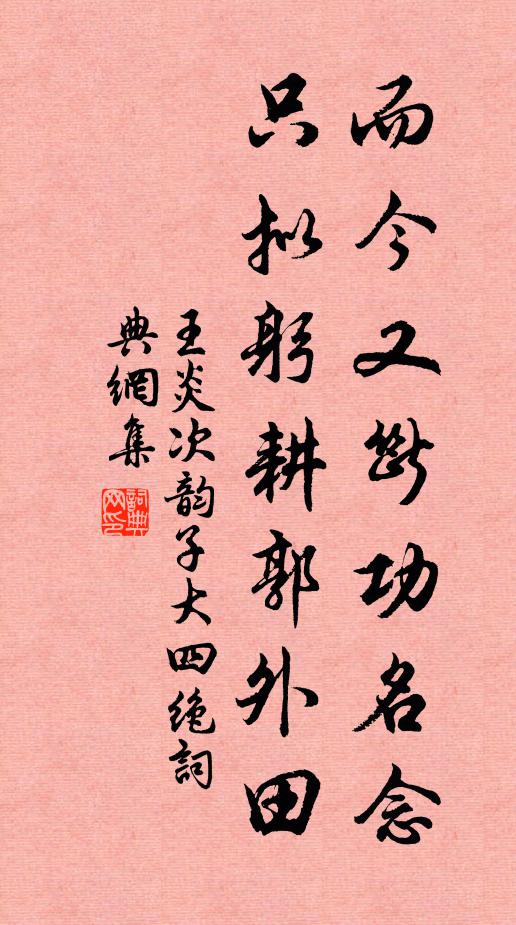 而今又斷功名念
只拟躬耕郭外田
王炎次韵子大四绝詞
典網集
詞典网印